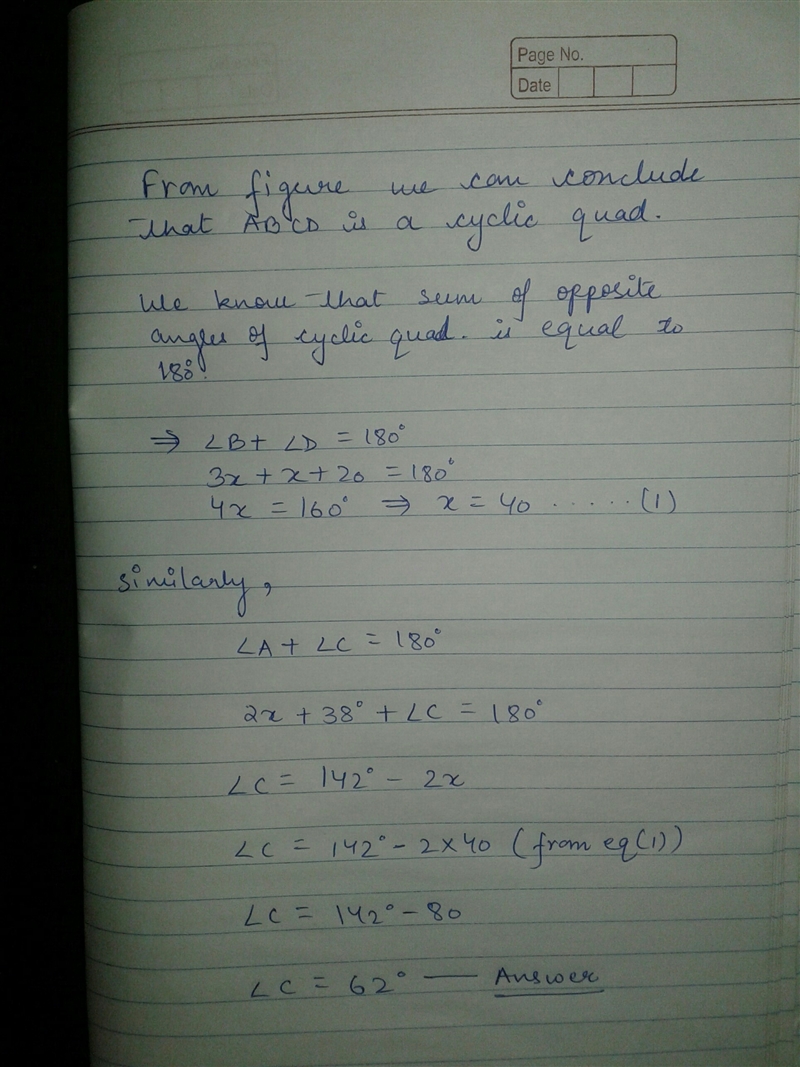 Page No.
Date
From figure we can conclude
that ABCD is a cyclic quad.
We know that sum of opposite
angles of cyclic quad. is equal to
180°.
⇒ ∠B + ∠D = 180°
3x + x + 20 = 180°
4x = 160° ⇒ x = 40 ..... (1)
Similarly,
∠A + ∠C = 180°
2x + 38° + ∠C = 180°
∠C = 142° - 2x
∠C = 142° - 2×40 (from eq(1))
∠C = 142° - 80
∠C = 62° — Answer